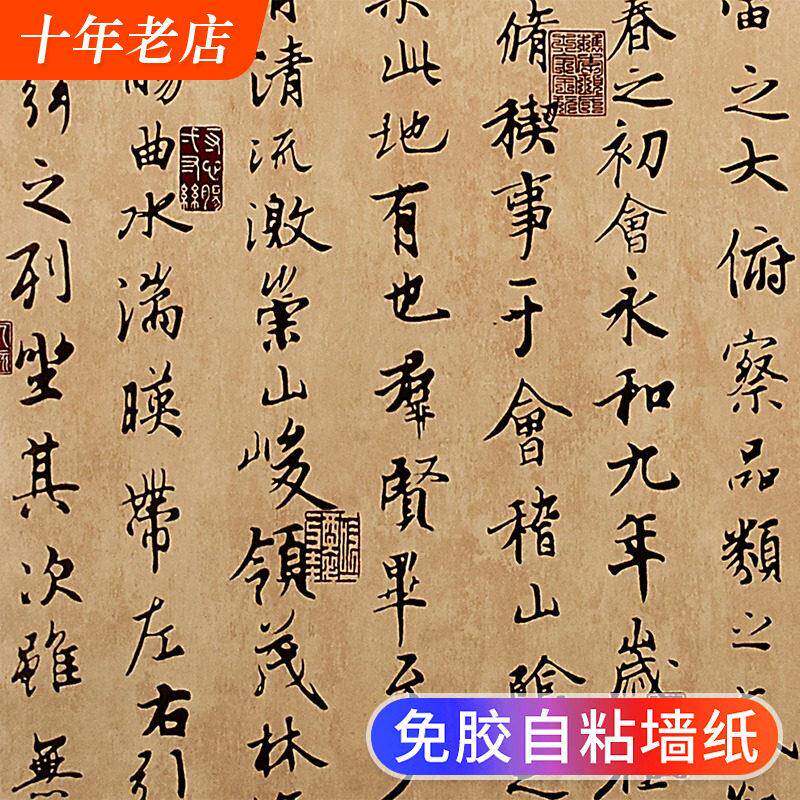 十年老店
之大俯察品類之
春之初會永和九年歲
脩稧事于會稽山陰之
此地有也羣賢畢至
清流激崇山峻領茂林
觴曲水湍暎帶左右引
之列坐其次雖無
免胶自粘墙纸